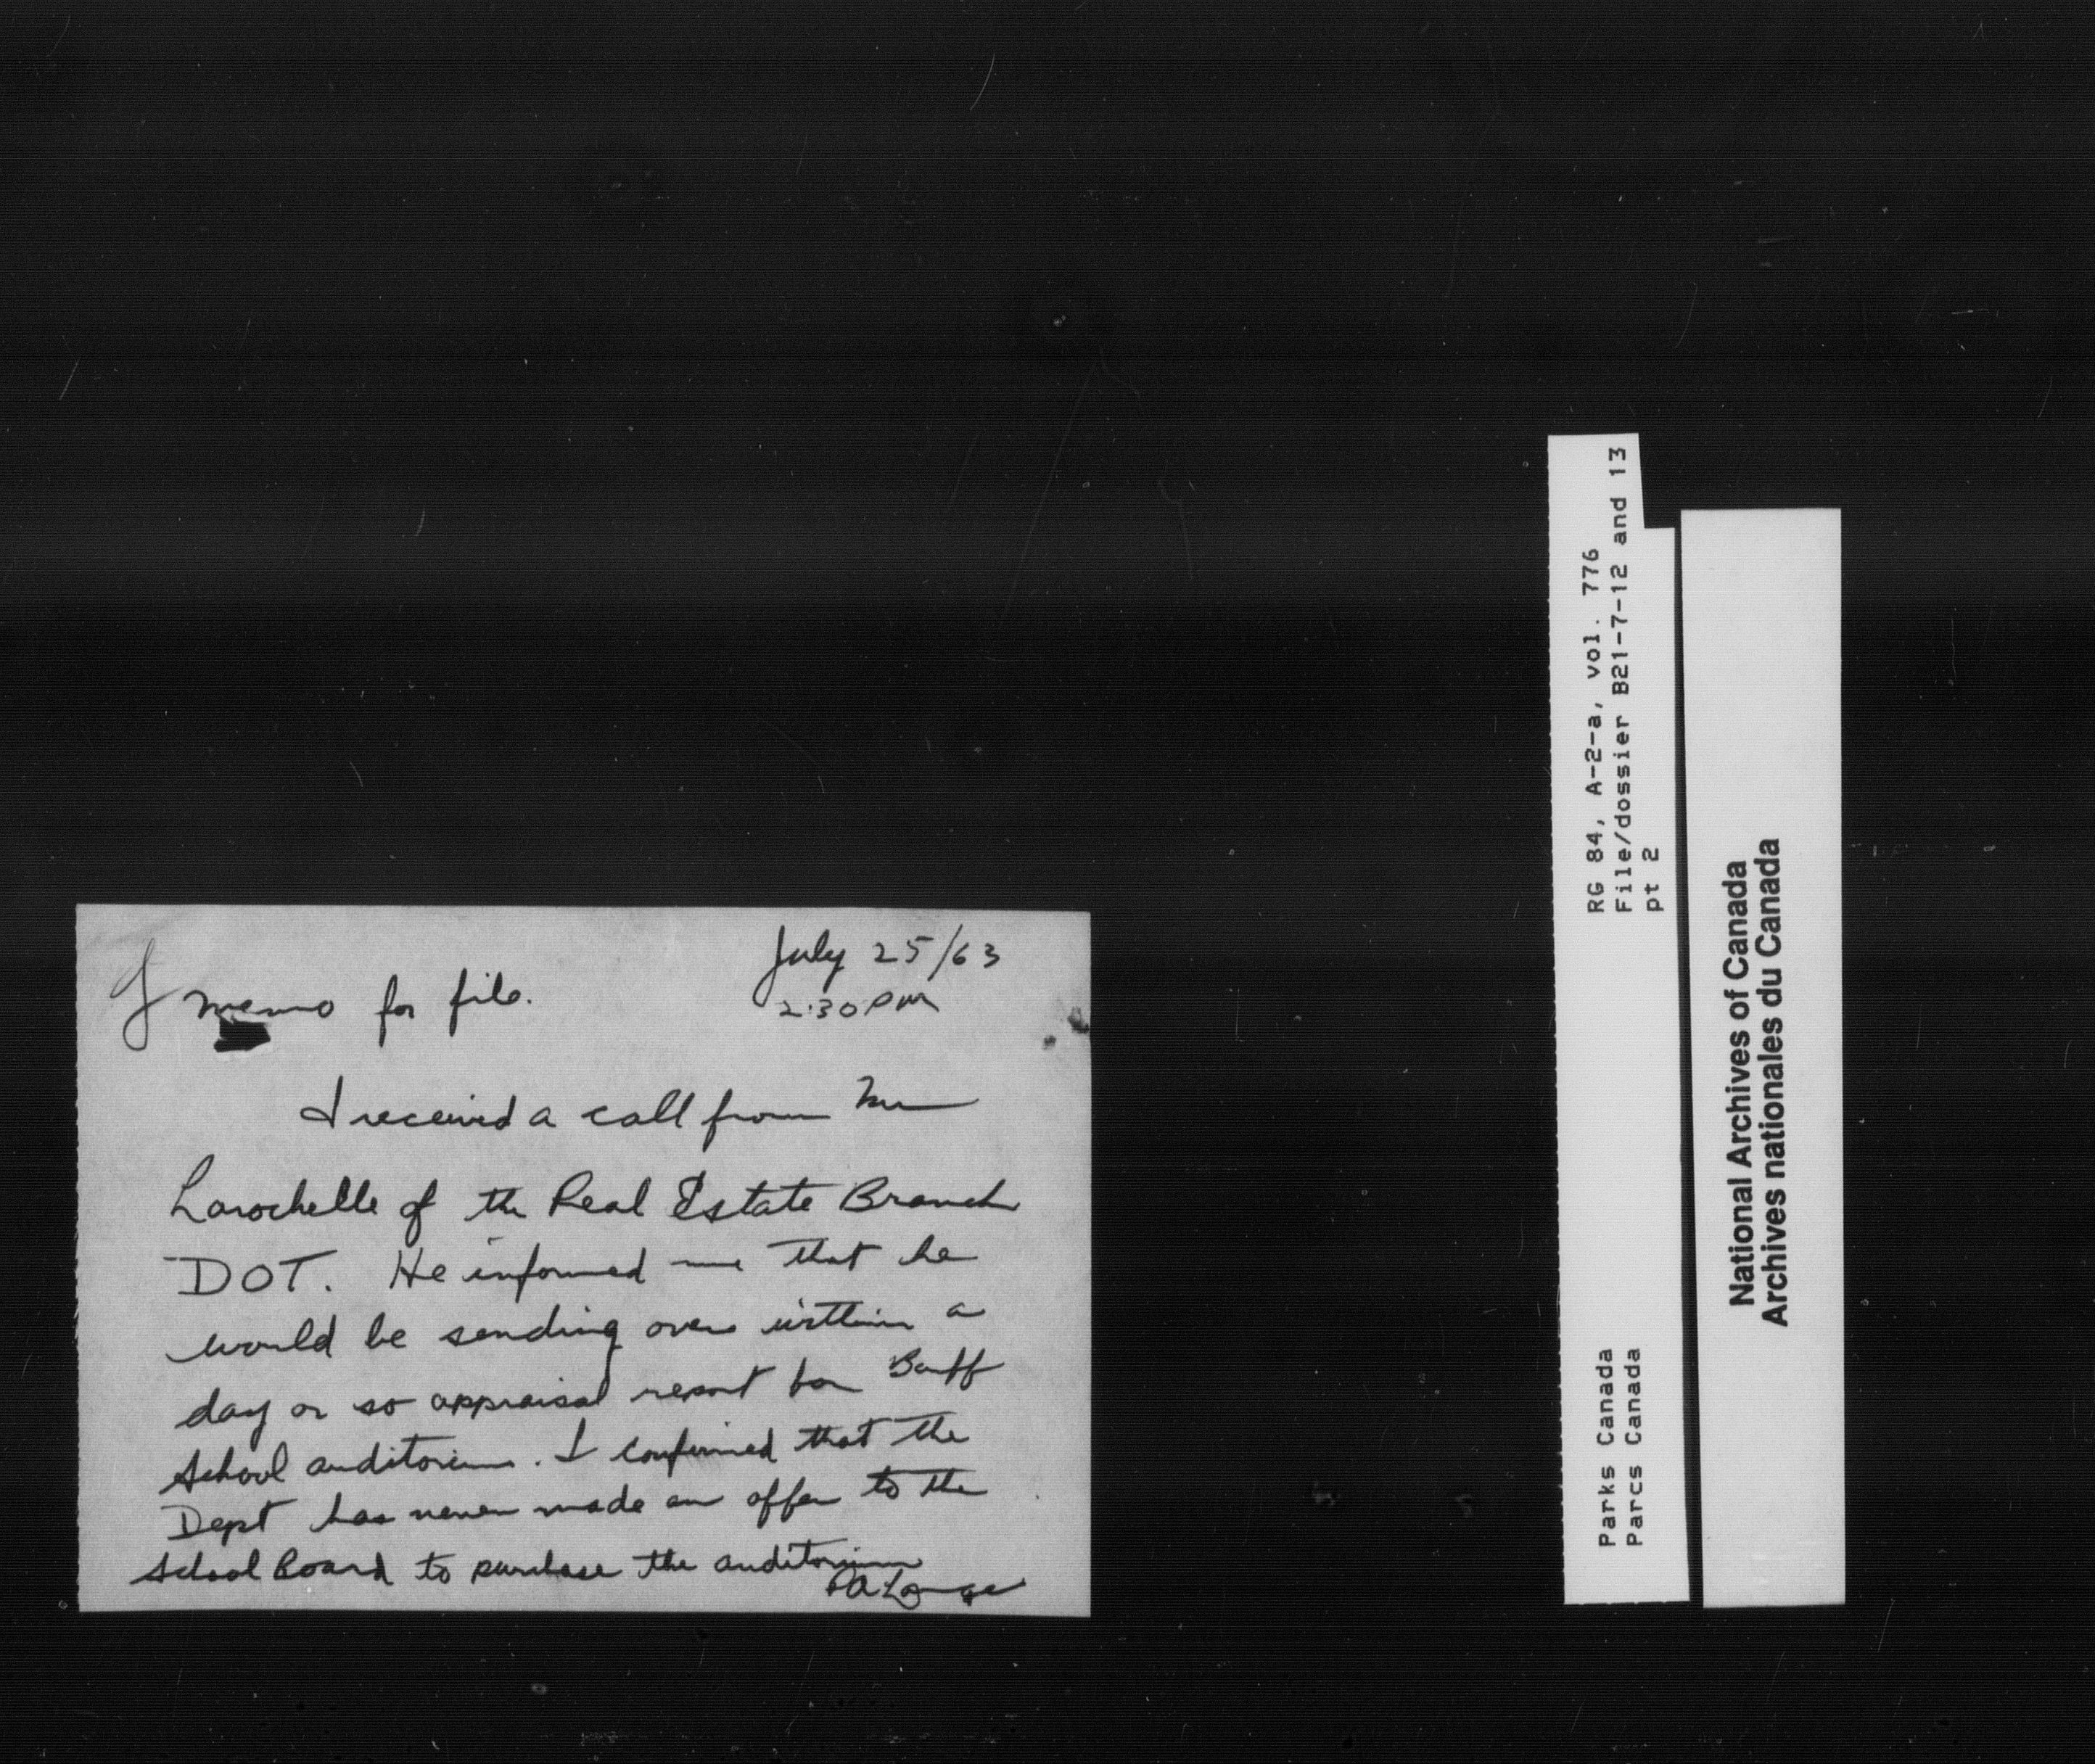 July 25/63
memo for file. 2:30 PM
I received a call from Mr
Larochelle of the Real Estate Branch
DOT. He informed me that he
would be sending over within a
day or so appraisal report for Banff
School auditorium. I confirmed that the
Dept has never made an offer to the
School Board to purchase the auditorium
RG 84, A-2-a, vol. 776
File/dossier B21-7-12 and 13
pt 2
Parks Canada
Parcs Canada
National Archives of Canada
Archives nationales du Canada